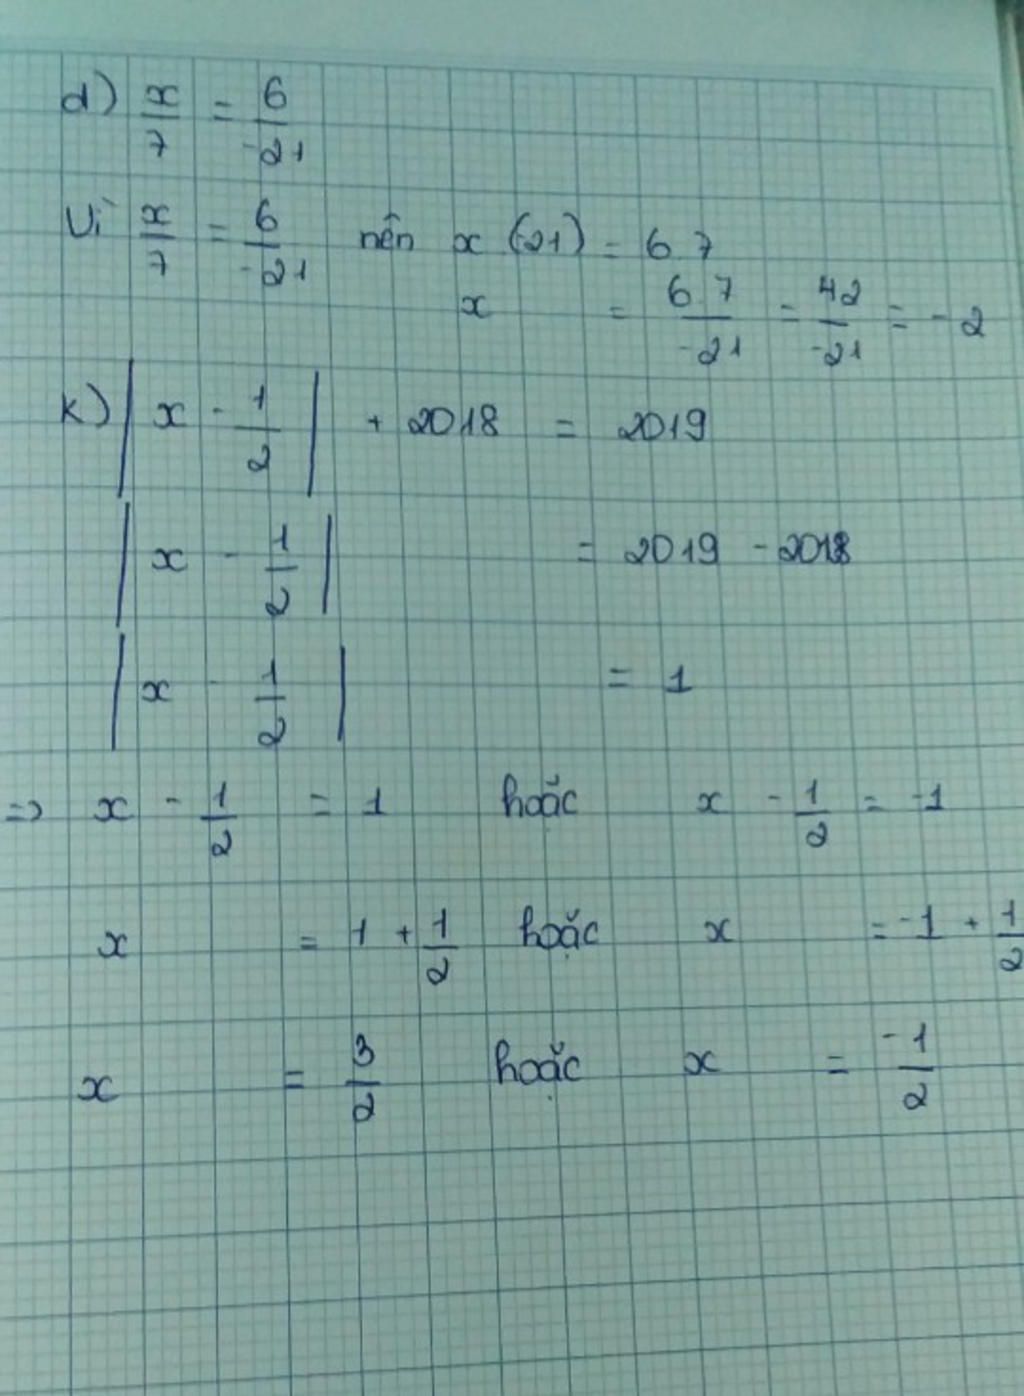 d) x/7 = 6/-21
Vì x/7 = 6/-21 nên x (-21) = 6.7
x = 6.7/-21 = 42/-21 = -2
k) |x - 1/2| + 2018 = 2019
|x - 1/2| = 2019 - 2018
|x - 1/2| = 1
=> x - 1/2 = 1 hoặc x - 1/2 = -1
x = 1 + 1/2 hoặc x = -1 + 1/2
x = 3/2 hoặc x = -1/2